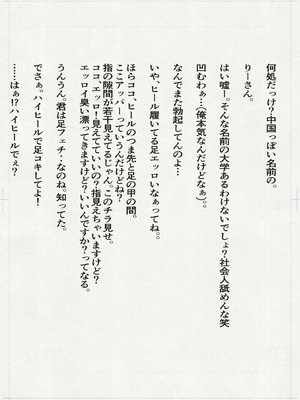 何処だっけ?中国っぽい名前の。
りーさん。
はい嘘ー。そんな名前の大学あるわけないでしょ?社会人舐めんな笑
凹むわぁ…(俺本気なんだけどなぁ)。
なんでまた勃起してんのよ…
いや、ヒール履いてる足エッロいなぁってね。
ほらココ、ヒールのつま先と足の甲の間。
ここアッパーっていうんだけどね?
指の隙間が若干見えてるじゃん。このチラ見せ。
ココ、エッロ!見えてていいの?指見えちゃいますけど?
エッロイ臭い漂ってきますけど?いいんですか?ってなる。
うんうん。君は足フェチ‥なのね。知ってた。
でさぁ。ハイヒールで足コキしてよ!
……はぁ!?ハイヒールでぇ?